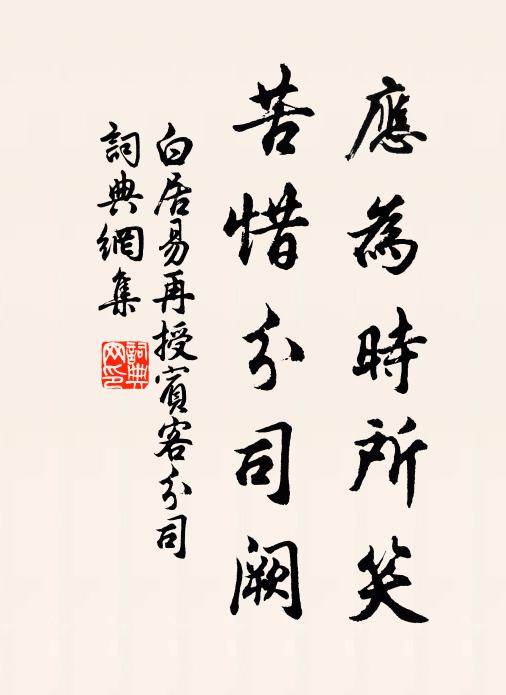 應為時所笑
苦惜分司闕
白居易再授賓客分司
詞典網集
詞典網印